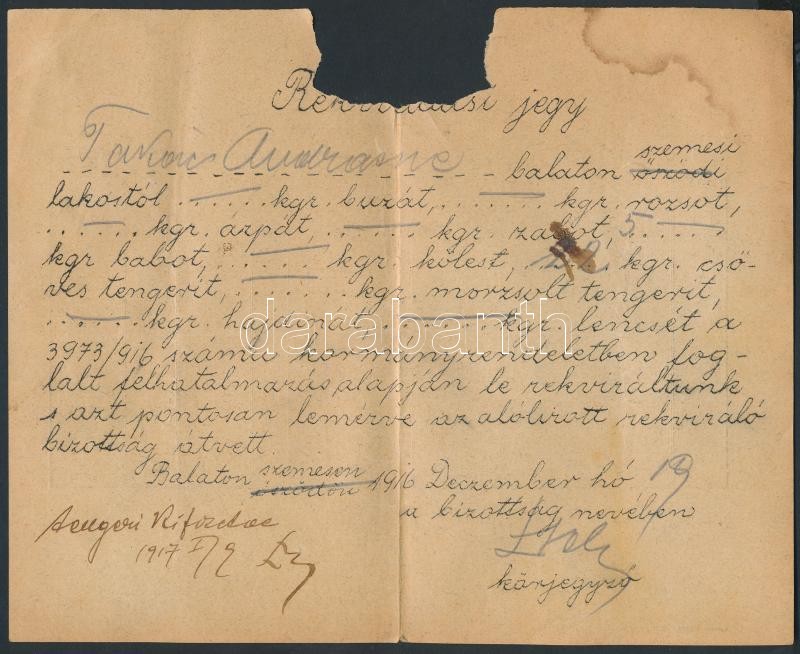 Rekvirálási jegy
Takács Andrásné balaton szemesi őszödi
lakostól ...... kgr. buzát, ...... kgr. rozsot,
...... kgr. árpát, ...... kgr. zabot, 5 ......
kgr babot, ...... kgr. kölest, ... kgr. csö-
ves tengerit, ...... kgr. morzsolt tengerit,
...... kgr. hajdinát, ...... kgr. lencsét a
3973/916 számú kormányrendeletben fog-
lalt felhatalmazás alapján le rekviráltunk
s azt pontosan lemérve az alólirott rekviráló
bizottság átvett.
Balaton szemesen őszödön 1916 Deczember hó 19
a bizottság nevében
tengeri Kifizetve
1917 I/9
körjegyző
darabanth